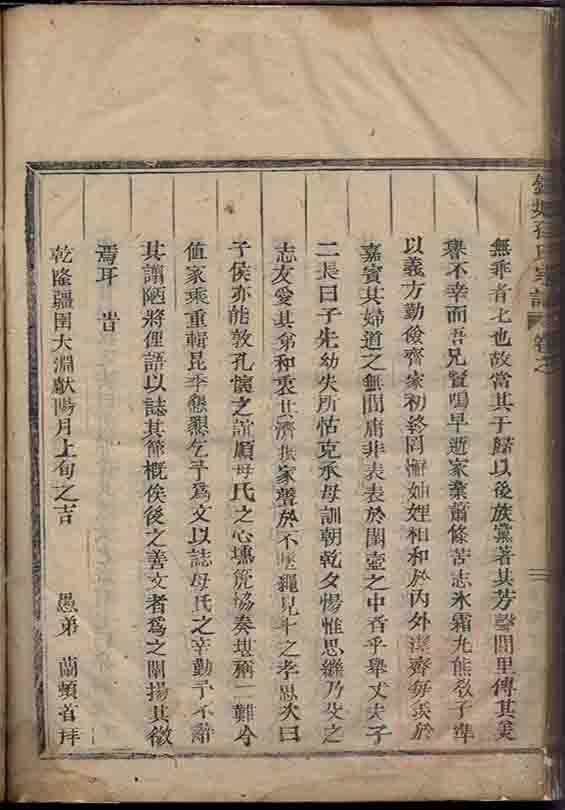 無乖者七也故當其于歸以後族黨著其芳聲閭里傳其美
譽不幸而吾兄賢鳴早逝家業蕭條苦志氷霜九熊敎子準
以義方勤儉齊家初終罔懈妯娌相和於內外 齊每 於
嘉賓其婦道之無間庸非表表於閨壺之中者乎舉丈夫子
二長曰子先幼失所怙克承母訓朝乾夕惕惟思繼乃父之
志友愛其弟和衷共濟振家聲於不墜 見斗之孝思次曰
子侯亦能敦孔懷之誼順母氏之心壎箎協奏堪稱二難今
值家乘重輯昆季懇懇乞予爲文以誌母氏之辛勤予不辭
其譾陋將俚語以誌其節概俟後之善文者爲之闡揚其徽
焉耳 旹
乾隆疆圉大淵獻陽月上旬之吉 愚弟 蘭頓首拜
氏宗譜 卷之